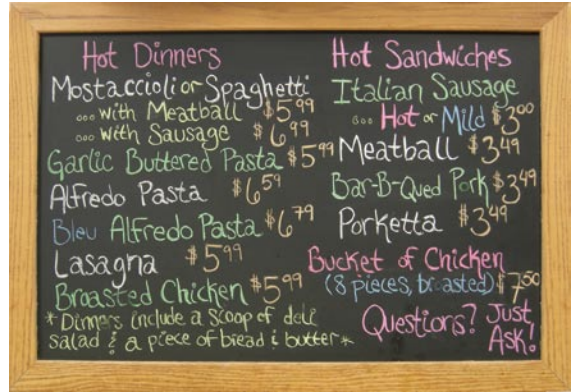 Hot Dinners
Mostaccioli or Spaghetti
... with Meatball $5.99
... with Sausage $6.99
Garlic Buttered Pasta $5.99
Alfredo Pasta $6.59
Bleu Alfredo Pasta $6.79
Lasagna $5.99
Broasted Chicken $5.99
*Dinners include a scoop of deli
salad & a piece of bread & butter*
Hot Sandwiches
Italian Sausage
... Hot or Mild $3.00
Meatball $3.49
Bar-B-Qued Pork $3.49
Porketta $3.49
Bucket of Chicken
(8 pieces, broasted) $7.50
Questions? Just
Ask!